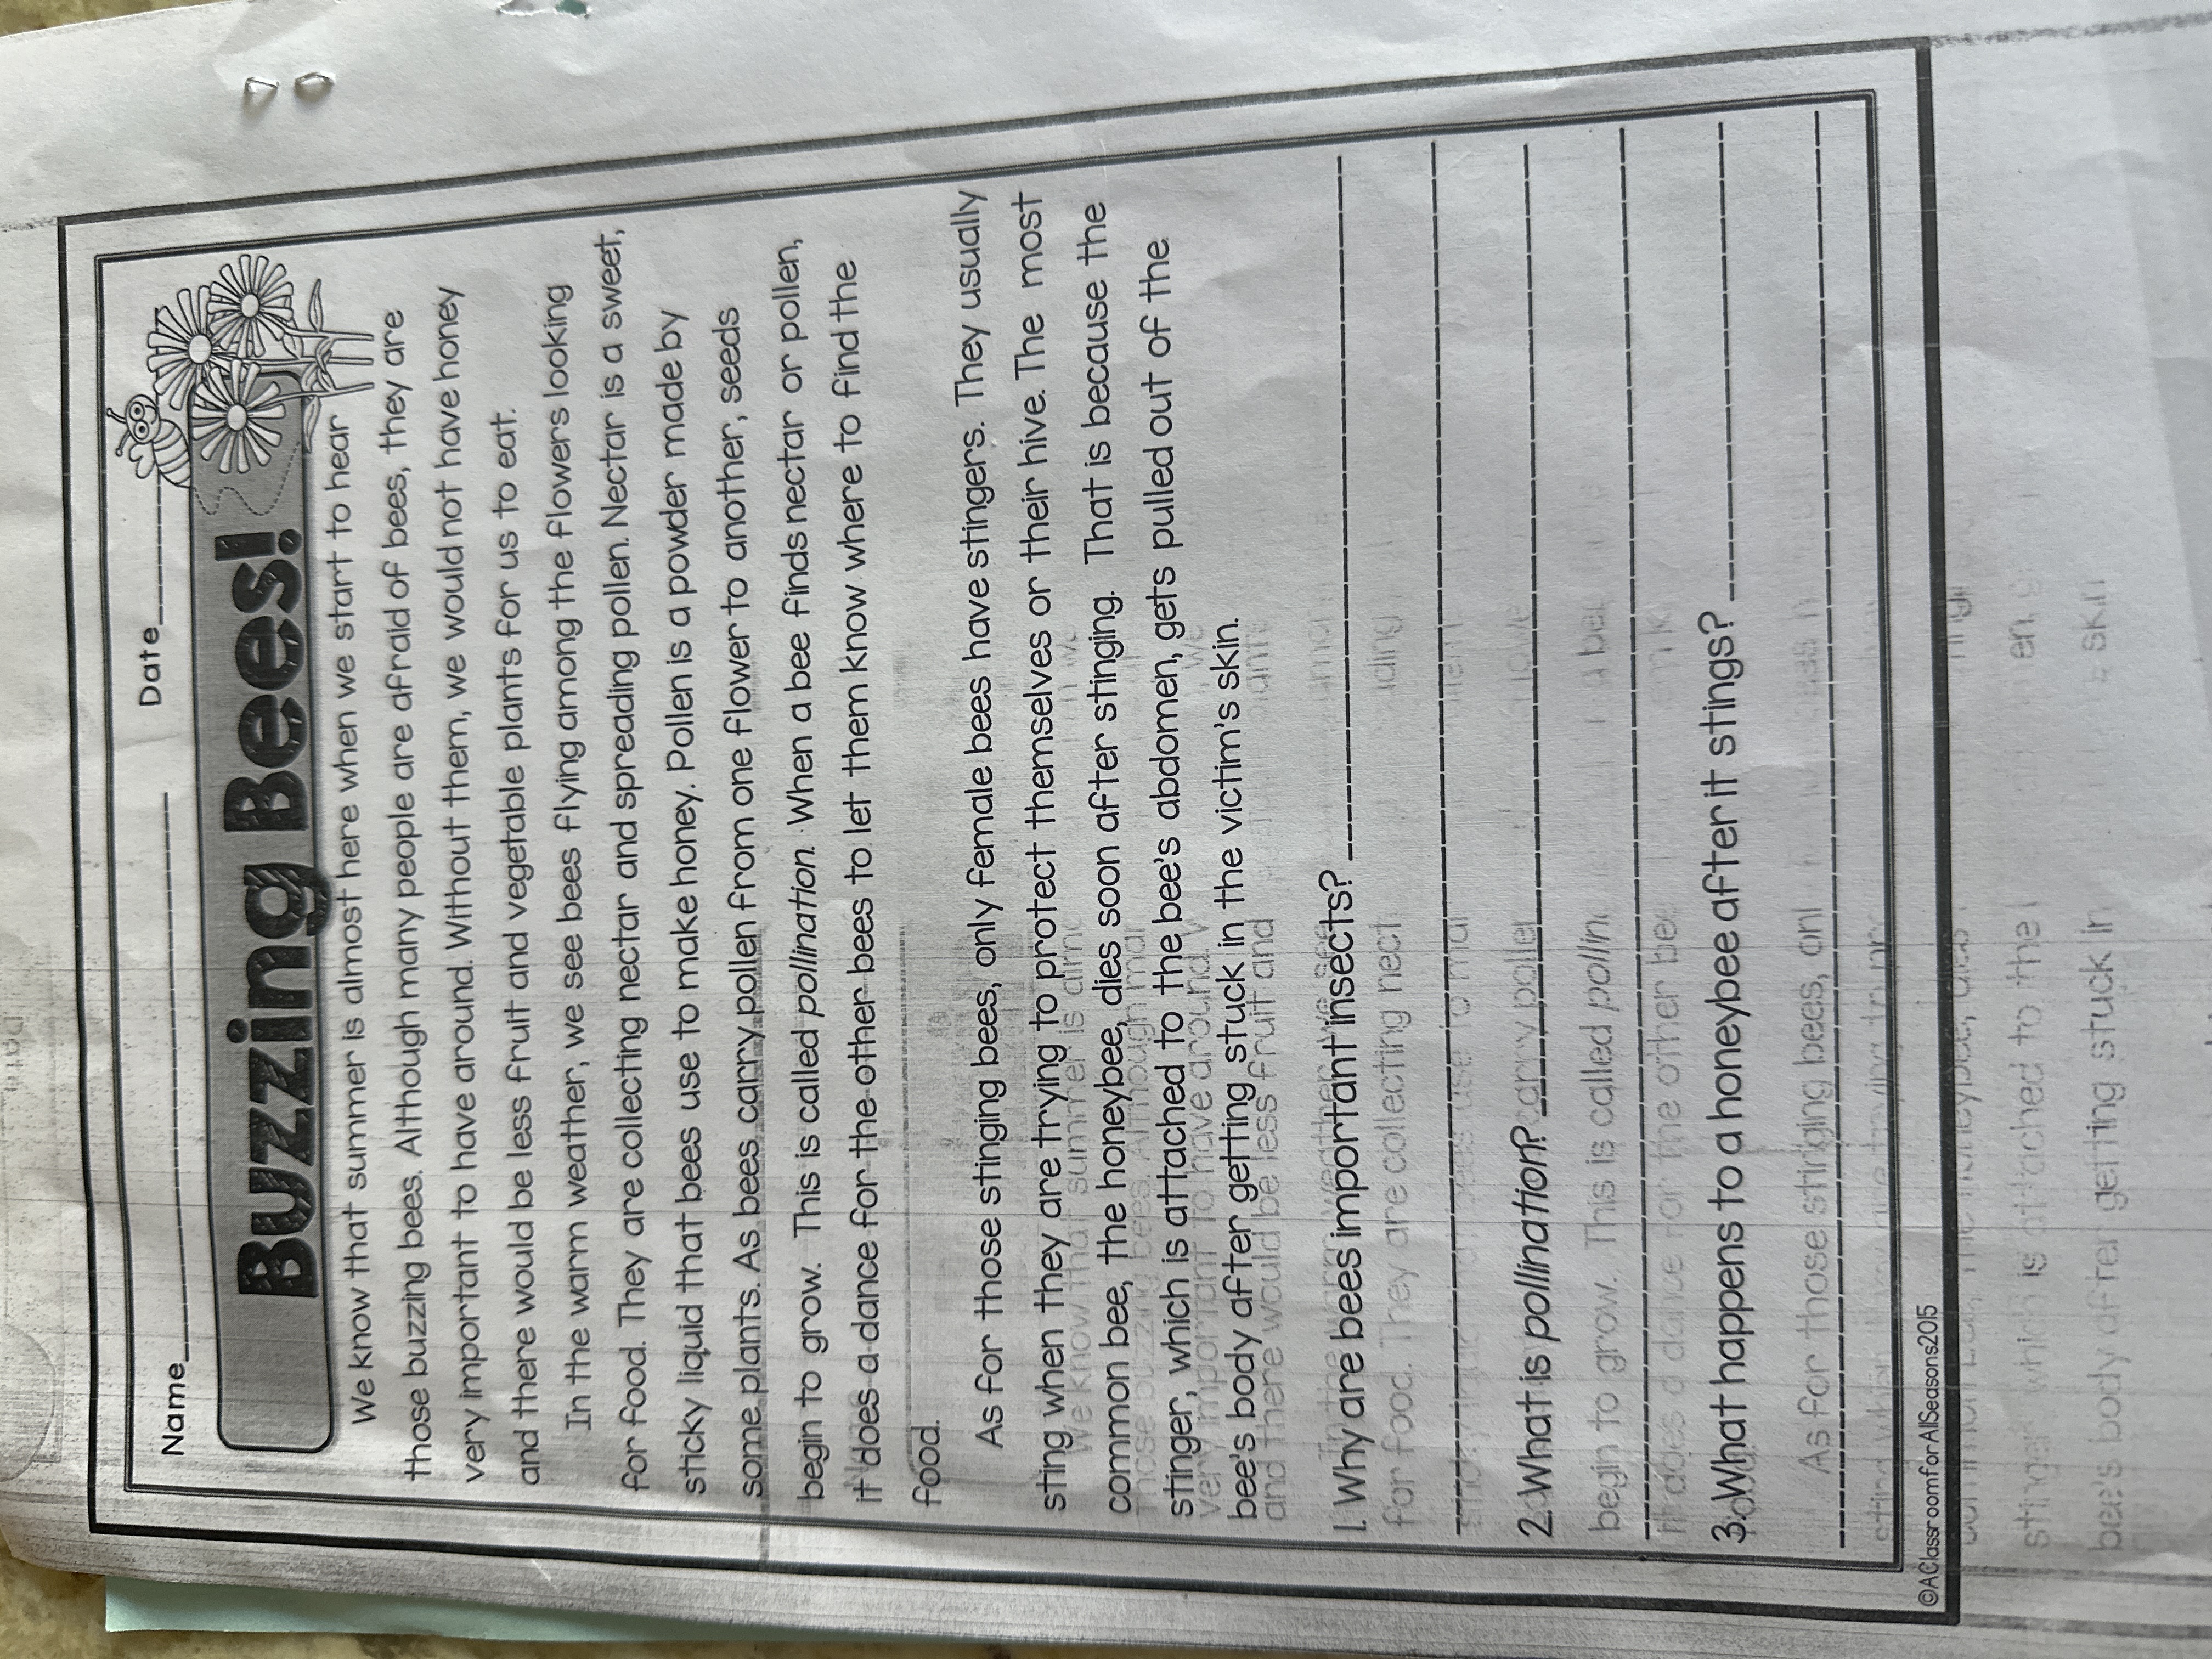 Name Date
Buzzing Bees!
We know that summer is almost here when we start to hear
those buzzing bees. Although many people are afraid of bees, they are
very important to have around. Without them, we would not have honey
and there would be less fruit and vegetable plants for us to eat.
In the warm weather, we see bees flying among the flowers looking
for food. They are collecting nectar and spreading pollen. Nectar is a sweet,
sticky liquid that bees use to make honey. Pollen is a powder made by
some plants. As bees carry pollen from one flower to another, seeds
begin to grow. This is called pollination. When a bee finds nectar or pollen,
it does a dance for the other bees to let them know where to find the
food.
As for those stinging bees, only female bees have stingers. They usually
sting when they are trying to protect themselves or their hive. The most
common bee, the honeybee, dies soon after stinging. That is because the
stinger, which is attached to the bee's abdomen, gets pulled out of the
bee's body after getting stuck in the victim's skin.
1. Why are bees important insects?
2. What is pollination?
3. What happens to a honeybee after it stings?
©AClassroomforAllSeasons2015